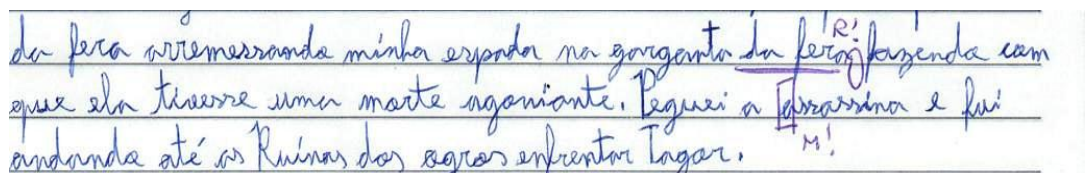 da fera arremessando minha espada na garganta da fera, fazendo com
R!
que ela tivesse uma morte agoniante. Peguei a assassina e fui
M!
andando até as Ruínas dos ogros enfrentar Tagar.